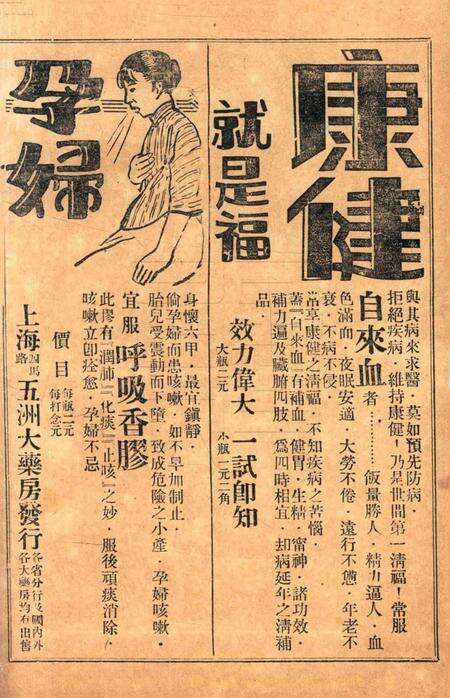 康健
就是福
與其病來求醫．莫如預先防病．
拒絕疾病．維持康健！乃是世間第一清福！常服
自來血者………飯量勝人．精力逼人．血
色滿血．夜眠安適．大勞不倦．遠行不憊．年老不
衰．不病不侵．
常享康健之清福．不知疾病之苦惱．
蓋『自來血』有補血．健胃．生精．甯神．諸功效．
補力遍及臟腑四肢．為四時相宜．却病延年之清補
品．
效力偉大 一試卽知
大瓶二元 小瓶一元二角
孕婦
身懷六甲．最宜鎮靜．
倘孕婦而患咳嗽．如不早加制止．
胎兒受震動而下墮．致成危險之小產．孕婦咳嗽．
宜服 呼吸香膠
此膠有『潤肺』『化痰』『止咳』之妙．服後頑痰消除．
咳嗽立卽痊愈．孕婦不忌
價目 每瓶一元 每打元
上海四馬路 五洲大藥房發行 各省分行及國內外各大藥房均有出售